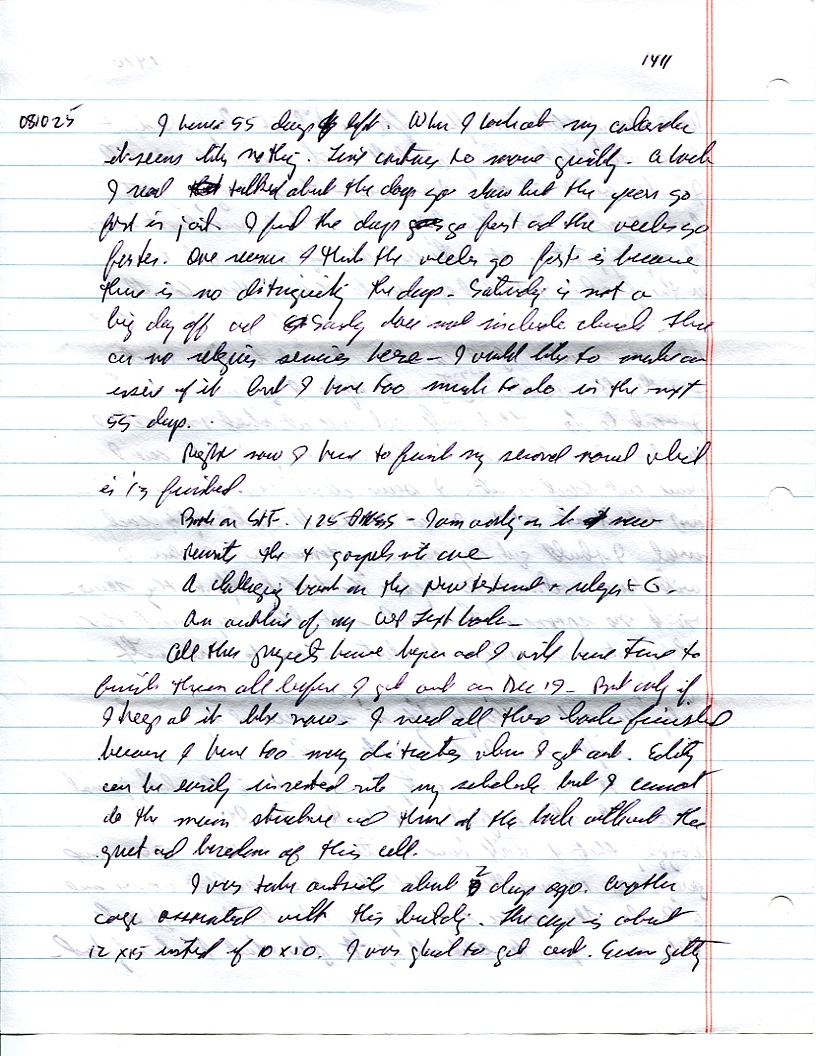 1411
081025 I have 55 days left. When I look at my calendar
it seems like nothing. Time continues to move quickly. A book
I read talked about the days go slow but the years go
fast in jail. I find the days go fast and the weeks go
faster. One reason I think the weeks go fast is because
there is no distinguishing the days. Saturday is not a
big day off and Sunday does not include church. There
are no religious services here - I would like to make an
issue of it but I have too much to do in the next
55 days.
Right now I have to finish my second novel which
is finished.
Book on 125 - I am working on it now
Rewrite the 4 gospels into one
A challenging book on the New Testament + religion +
An outline of my text book -
All these projects have begun and I will have time to
finish them all before I get out on Dec 19 - But only if
I keep at it like now. I need all these books finished
because I have too many distractions when I get out. Editing
can be easily inserted into my schedule but I cannot
do the main structure and theme of the book without the
quiet and boredom of this cell.
I was taken outside about 7 days ago. Another
cage associated with this building. The cage is about
12 x 15 instead of 10 x 10. I was glad to get out. Even getting